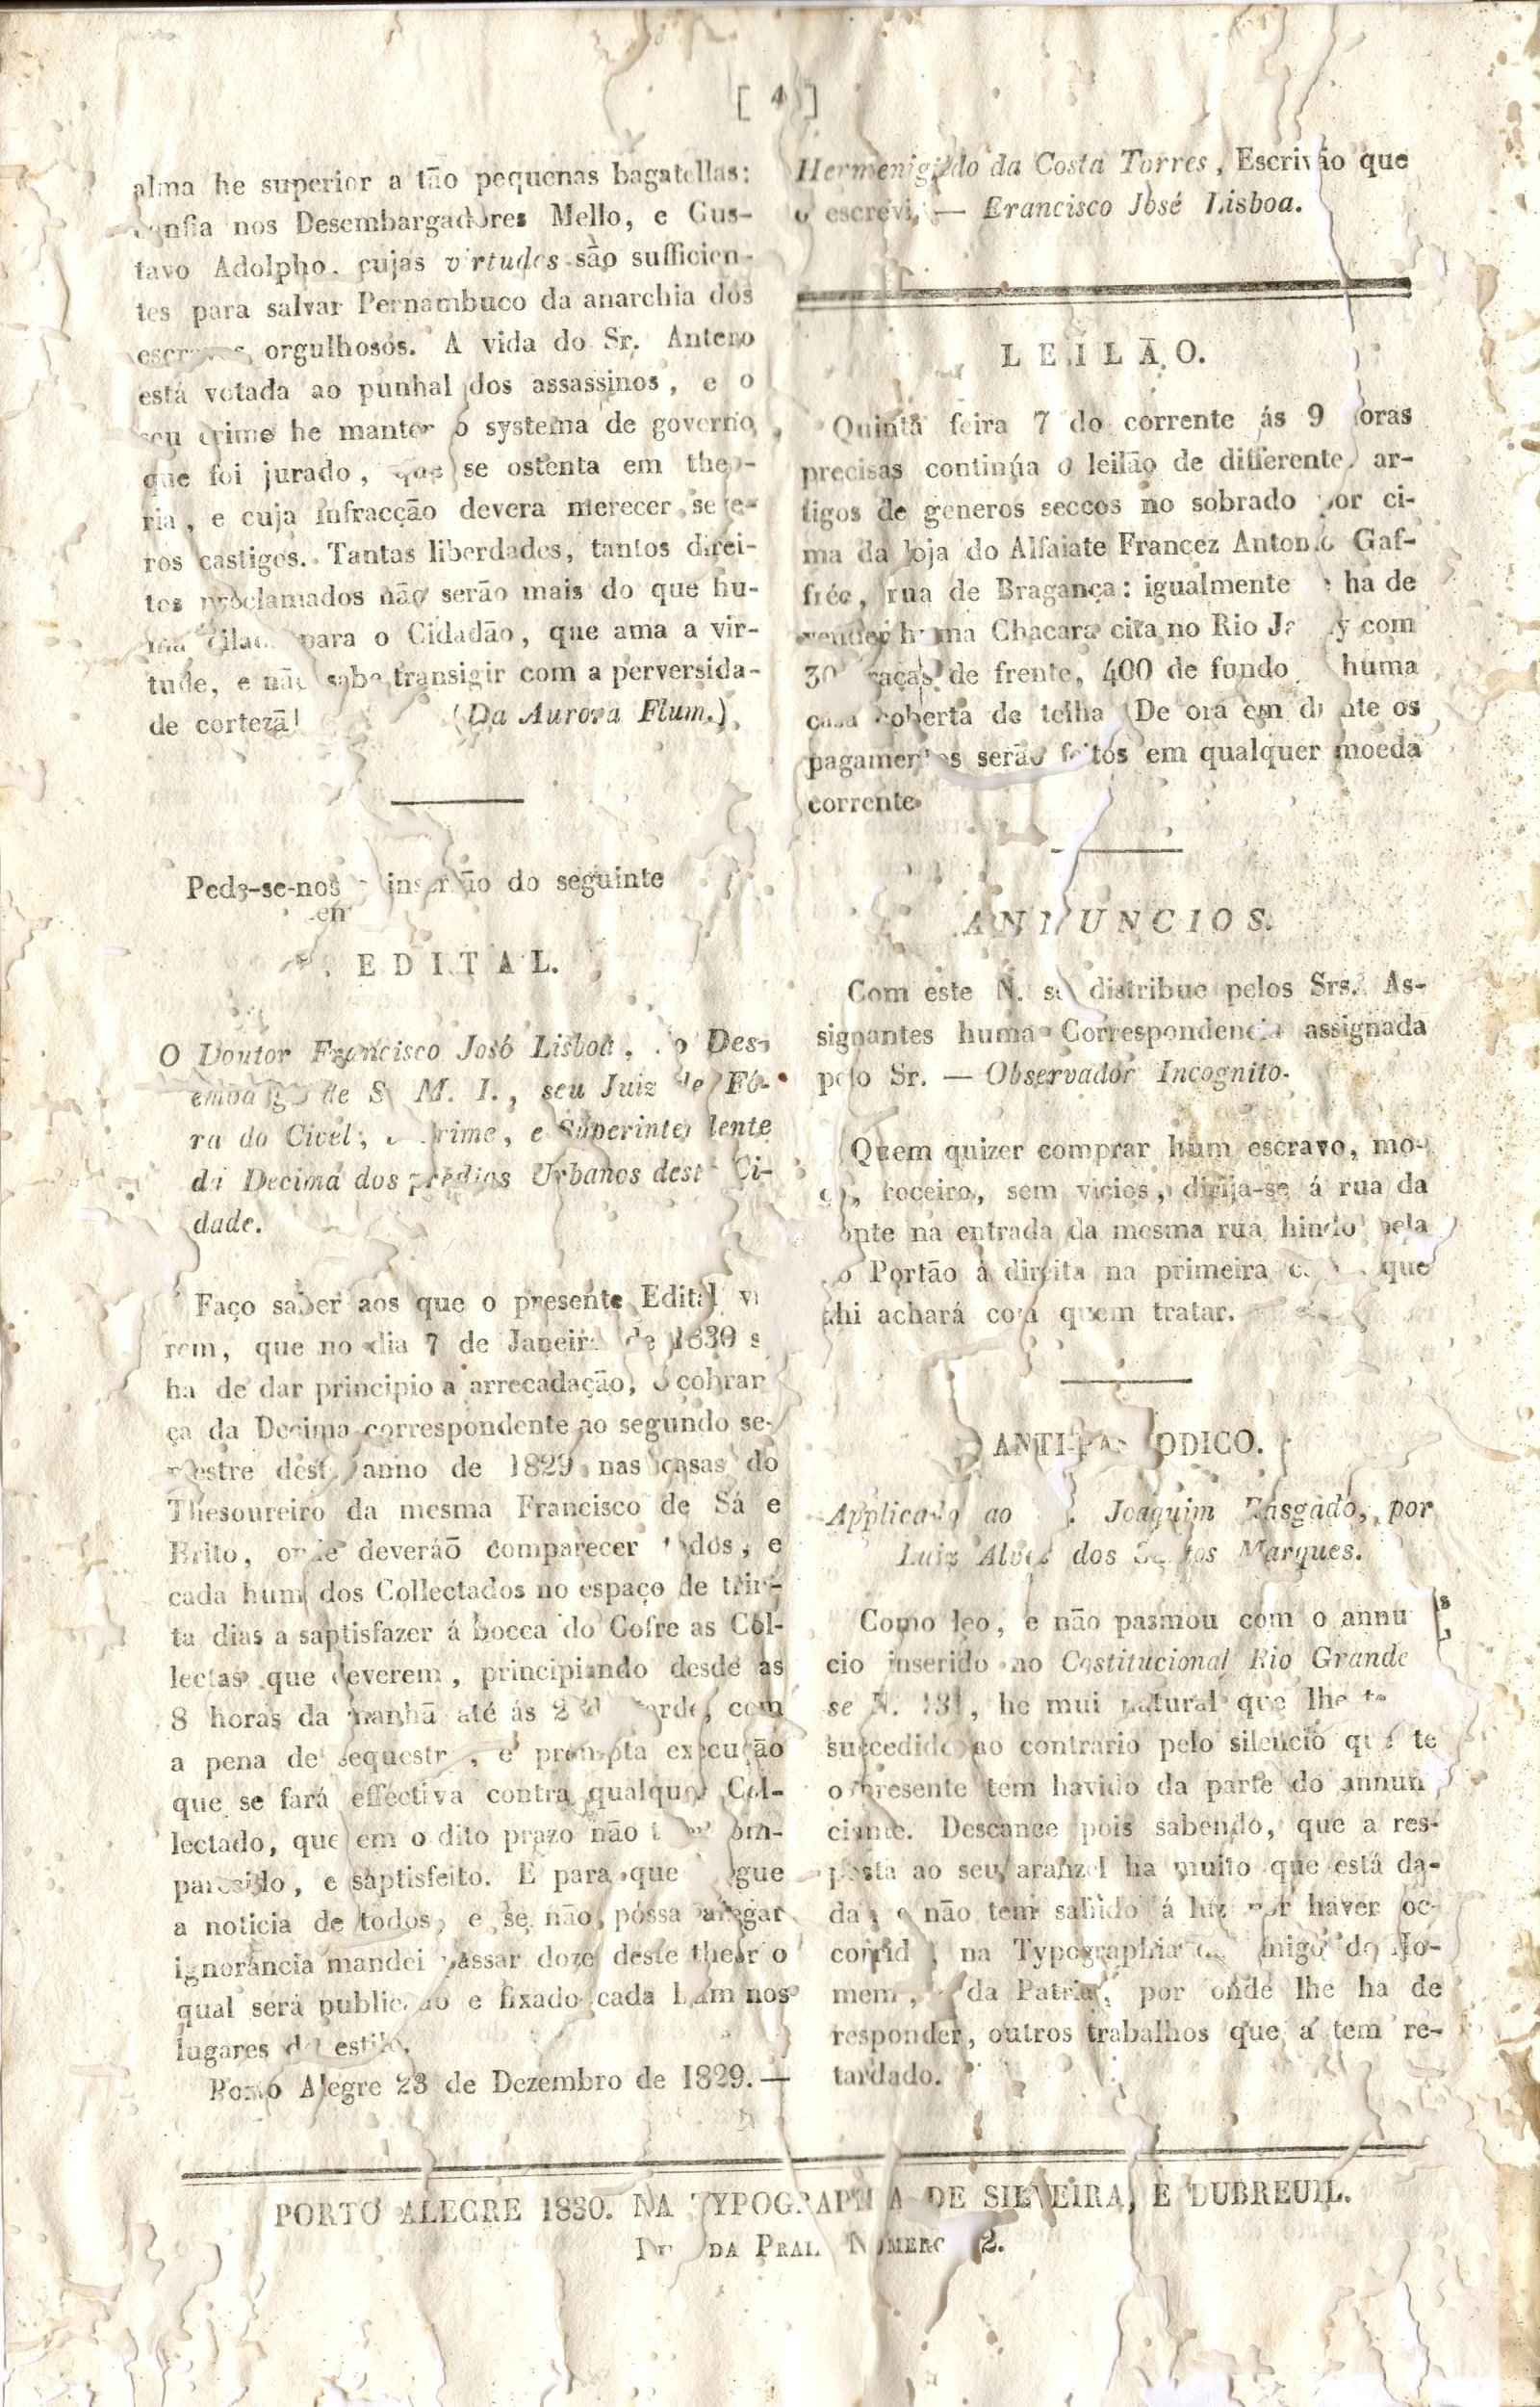 [ 4 ]
alma he superior a tão pequenas bagatellas:
confia nos Desembargadores Mello, e Gus-
tavo Adolpho, cujas virtudes são sufficien-
tes para salvar Pernambuco da anarchia dos
escravos orgulhosos. A vida do Sr. Antero
está votada ao punhal dos assassinos, e o
seu crime he manter o systema de governo,
que foi jurado, que se ostenta em theo-
ria, e cuja infracção devera merecer seve-
ros castigos. Tantas liberdades, tantos direi-
tos proclamados não serão mais do que hu-
ma cilada para o Cidadão, que ama a vir-
tude, e não sabe transigir com a perversida-
de cortezã! (Da Aurora Flum.)
Pede-se-nos a inserção do seguinte
EDITAL.
O Doutor Francisco José Lisboa, do Des-
embargo de S. M. I., seu Juiz de Fó-
ra do Civel, e Crime, e Superintendente
da Decima dos predios Urbanos desta Ci-
dade.
Faço saber aos que o presente Edital vi
rem, que no dia 7 de Janeiro de 1830 s
ha de dar principio a arrecadação, e cobran
ça da Decima correspondente ao segundo se-
mestre deste anno de 1829 nas casas do
Thesoureiro da mesma Francisco de Sá e
Brito, onde deveráõ comparecer todos, e
cada hum dos Collectados no espaço de trin-
ta dias a saptisfazer á bocca do Cofre as Col-
lectas que deverem, principiando desde as
8 horas da manhã até ás 2 da tarde, com
a pena de sequestro, e prompta execução
que se fará effectiva contra qualquer Col-
lectado, que em o dito prazo não com-
parecido, e saptisfeito. E para que gue
a noticia de todos, e se não possa alegar
ignorancia mandei passar doze deste theor o
qual será publicado e fixado cada hum nos
lugares do estilo.
Porto Alegre 23 de Dezembro de 1829. —
Hermenigildo da Costa Torres, Escrivão que
o escrevi, — Erancisco José Lisboa.
LEILÃO.
Quinta feira 7 do corrente ás 9 horas
precisas continúa o leilão de differentes ar-
tigos de generos seccos no sobrado por ci-
ma da loja do Alfaiate Francez Antonio Gaf-
frée, rua de Bragança: igualmente se ha de
vender huma Chacara cita no Rio Ja y com
30 braças de frente, 400 de fundo huma
casa coberta de telha. De ora em diante os
pagamentos serão feitos em qualquer moeda
corrente.
ANNUNCIOS.
Com este N. se distribue pelos Srs. As-
signantes huma Correspondencia assignada
pelo Sr. — Observador Incognito.
Quem quizer comprar hum escravo, mo-
ço, roceiro, sem vicios, dirija-se á rua da
onte na entrada da mesma rua hindo pela
do Portão á direita na primeira casa que
ahi achará com quem tratar.
ANTI-PASMODICO.
Applicado ao Joaquim Rasgado, por
Luiz Alves dos Santos Marques.
Como leo, e não pasmou com o annu
cio inserido no Costitucional Rio Grande
se N. 131, he mui natural que lhe te
succedido ao contrario pelo silencio que te
o presente tem havido da parte do annun
ciante. Descance pois sabendo, que a res-
posta ao seu aranzel ha muito que está da-
da, e não tem sahido á luz por haver oc-
corrid na Typographia do Amigo do Ho-
mem, e da Patria, por onde lhe ha de
responder, outros trabalhos que a tem re-
tardado.
PORTO ALEGRE 1830. NA TYPOGRAPHIA DE SILVEIRA, E DUBREUIL.
DA PRAIA NUMERO 2.